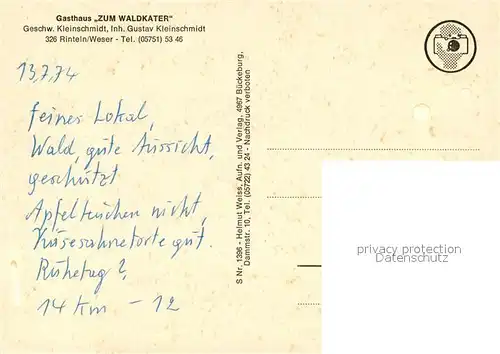 Gasthaus „ZUM WALDKATER"
Geschw. Kleinschmidt, Inh. Gustav Kleinschmidt
326 Rinteln/Weser - Tel. (05751) 53 46
13,7,74
feines Lokal,
Wald, gute Aussicht,
geschützt
Apfelkuchen nicht,
Käsesahnetorte gut.
Ruhetag?
14 km - 12
S Nr. 1396 - Helmut Weiss, Aufn. und Verlag, 4967 Bückeburg,
Dammstr. 10, Tel. (05722) 43 24 - Nachdruck verboten
privacy protection
Datenschutz